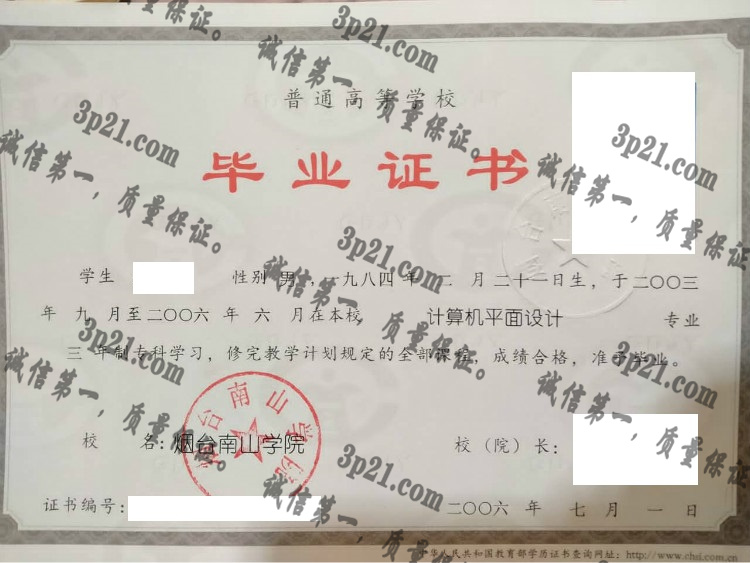 普通高等学校
毕业证书
学生 性别 男，一九八四年 二 月二十一日生，于二〇〇三
年 九 月至二〇〇六 年 六 月在本校 计算机平面设计 专业
三 年制专科学习，修完教学计划规定的全部课程，成绩合格，准予毕业。
校 名：烟台南山学院 校（院）长：
烟台南山学院
证书编号： 二〇〇六 年 七 月 一 日
中华人民共和国教育部学历证书查询网址：http://www.chsi.com.cn
3p21.com
诚信第一，质量保证。
3p21.com
诚信第一，质量保证。
3p21.com
诚信第一，质量保证。
3p21.com
诚信第一，质量保证。
3p21.com
诚信第一，质量保证。
3p21.com
诚信第一，质量保证。
3p21.com
诚信第一，质量保证。